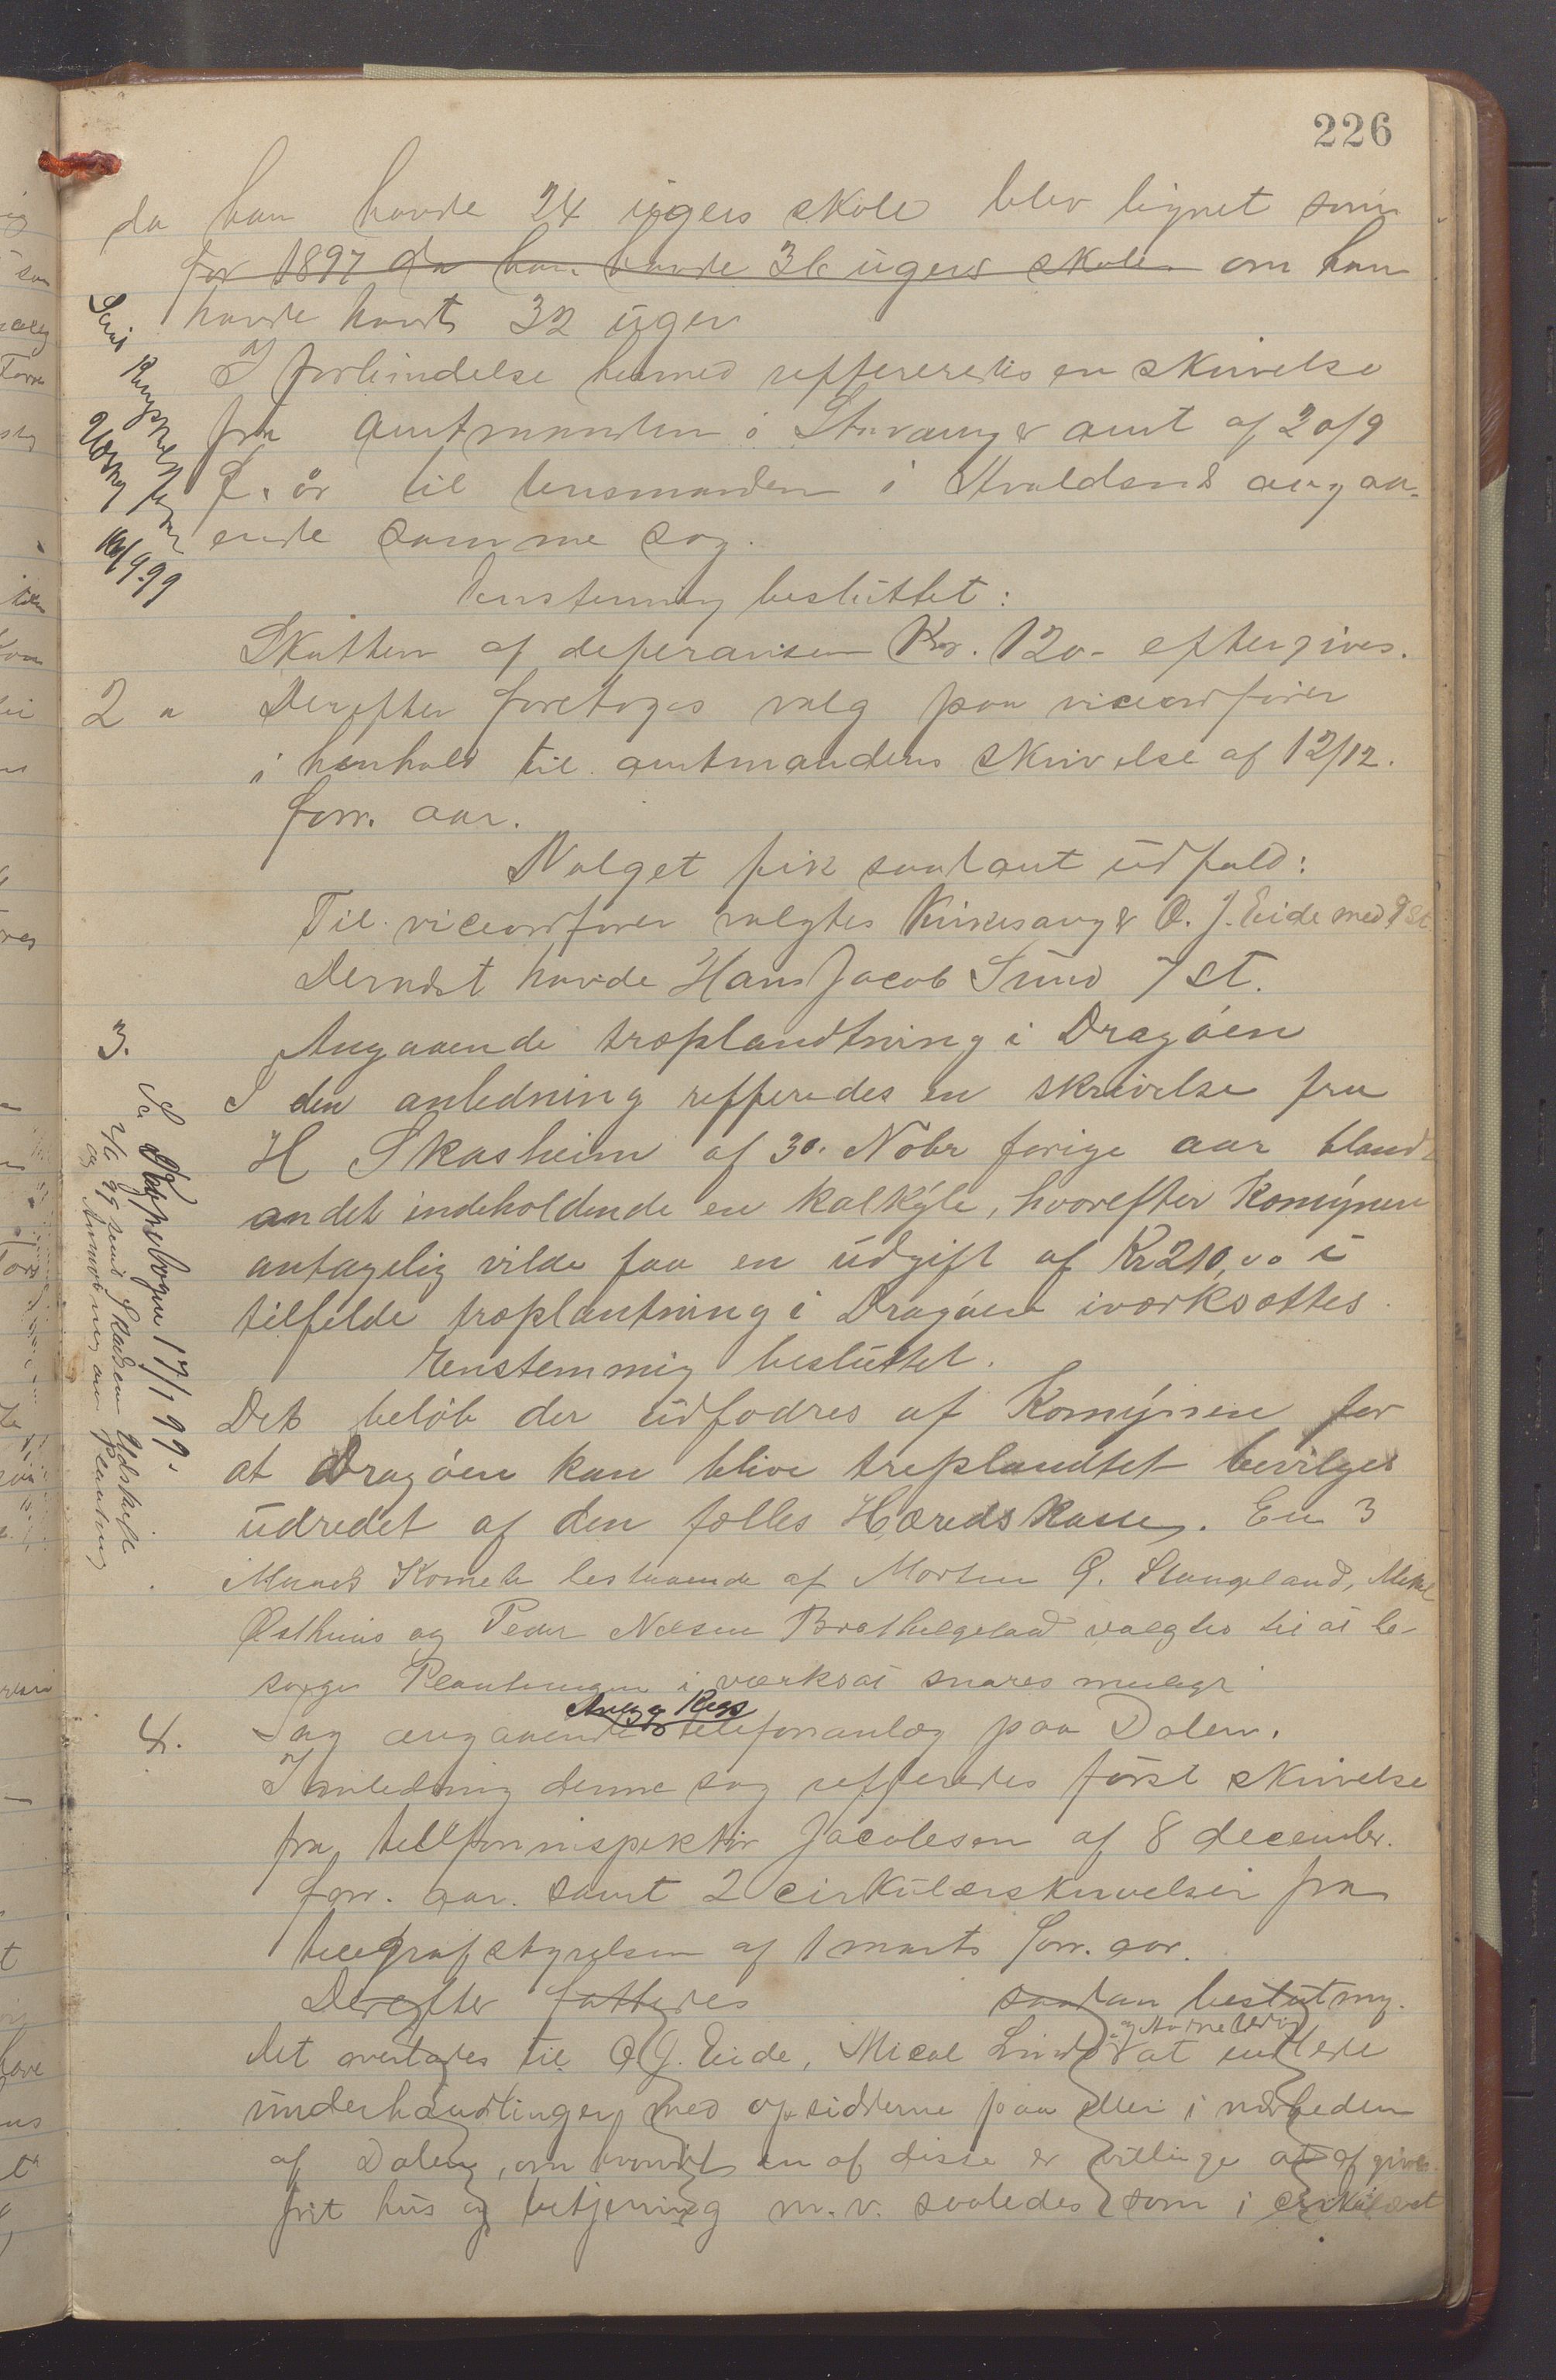 226
da han havde 24 ugers skole blev lignet som
for 1897 da han havde 36 ugers skole om han
havde havt 32 uger
I forbindelse hermed reffereredes en skrivelse
fra amtmanden i Stavanger amt af 20/9
f. år til lensmanden i Haaland angaa-
ende samme sag.
Enstemmig besluttet:
Skatten af deferansen Kr. 120- eftergives.
2 Derefter foretoges valg paa viceordfører
i henhold til amtmandens skrivelse af 12/12.
forr. aar.
Valget fik saadant udfald:
Til viceordfører valgtes Kirkesanger O. J. Eide med 9 st.
Dernæst havde Hans Jacob Sund 7 st.
3. Angaaende træplandtning i Dragøen
I den anledning refferedes en skrivelse fra
H Skasheim af 30. Nobr forige aar blandt
andet indeholdende en kalkyle, hvorefter Komunen
antagelig vilde faa en udgift af Kr 210,00 i
tilfelde træplantning i Dragøen iværksættes.
Enstemmig besluttet.
Det beløb der udfodres af Komunen for
at Dragøen kan blive treplandtet bevilges
udredet af den fælles Hæredskasse. En 3
Mands Komete bestaaende af Morten G. Stangeland, Mikal
Østhuus og Peder Nelsen valgtes til at be-
sørge Plantningen i værksat snares muligt
4. Sag angaaende telefonanlæg paa Dalen.
I anledning denne sag refferedes først skrivelse
fra tellfoninspektør Jacobsen af 8 december.
forr. aar. samt 2 cirkulærskrivelser fra
telegrafstyrelsen af 1 marts forr. aar.
Derefter fattedes saadan beslutning.
Det overlades til O J. Eide, Mical Lind at indlede
underhandlinger med opsidderne paa eller i nærheden
af Dalen, om hvorvidt en af disse er villige at afgive
frit hus og betjening m.v. saaledes som i cirkulæret
Se Kopibogen 17/1 99.